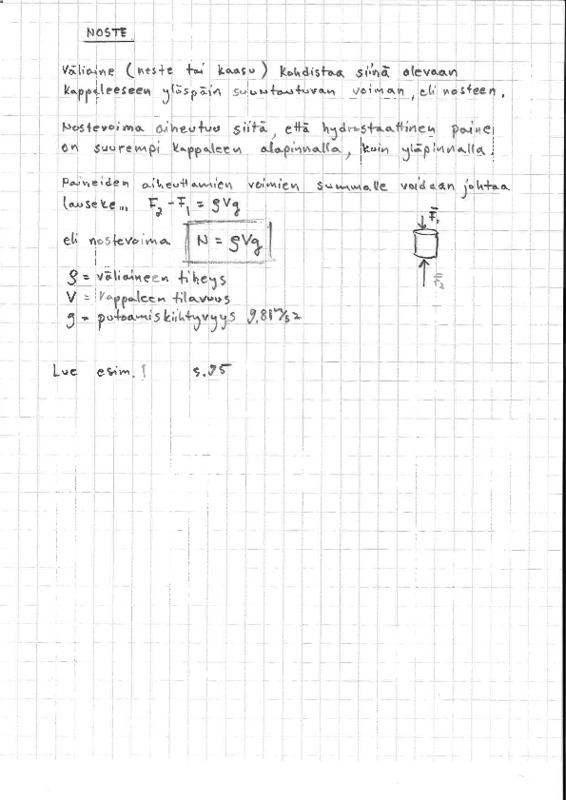 NOSTE
Väliaine (neste tai kaasu) kohdistaa siinä olevaan
kappaleeseen ylöspäin suuntautuvan voiman, eli nosteen.
Nostevoima aiheutuu siitä, että hydrostaattinen paine
on suurempi kappaleen alapinnalla, kuin yläpinnalla.
Paineiden aiheuttamien voimien summalle voidaan johtaa
lauseke... F₂ - F₁ = ρVg
F̄₁
eli nostevoima N = ρVg
F̄₂
ρ = väliaineen tiheys
V = kappaleen tilavuus
g = putoamiskiihtyvyys 9,81 m/s2
Lue esim. 1 s.95